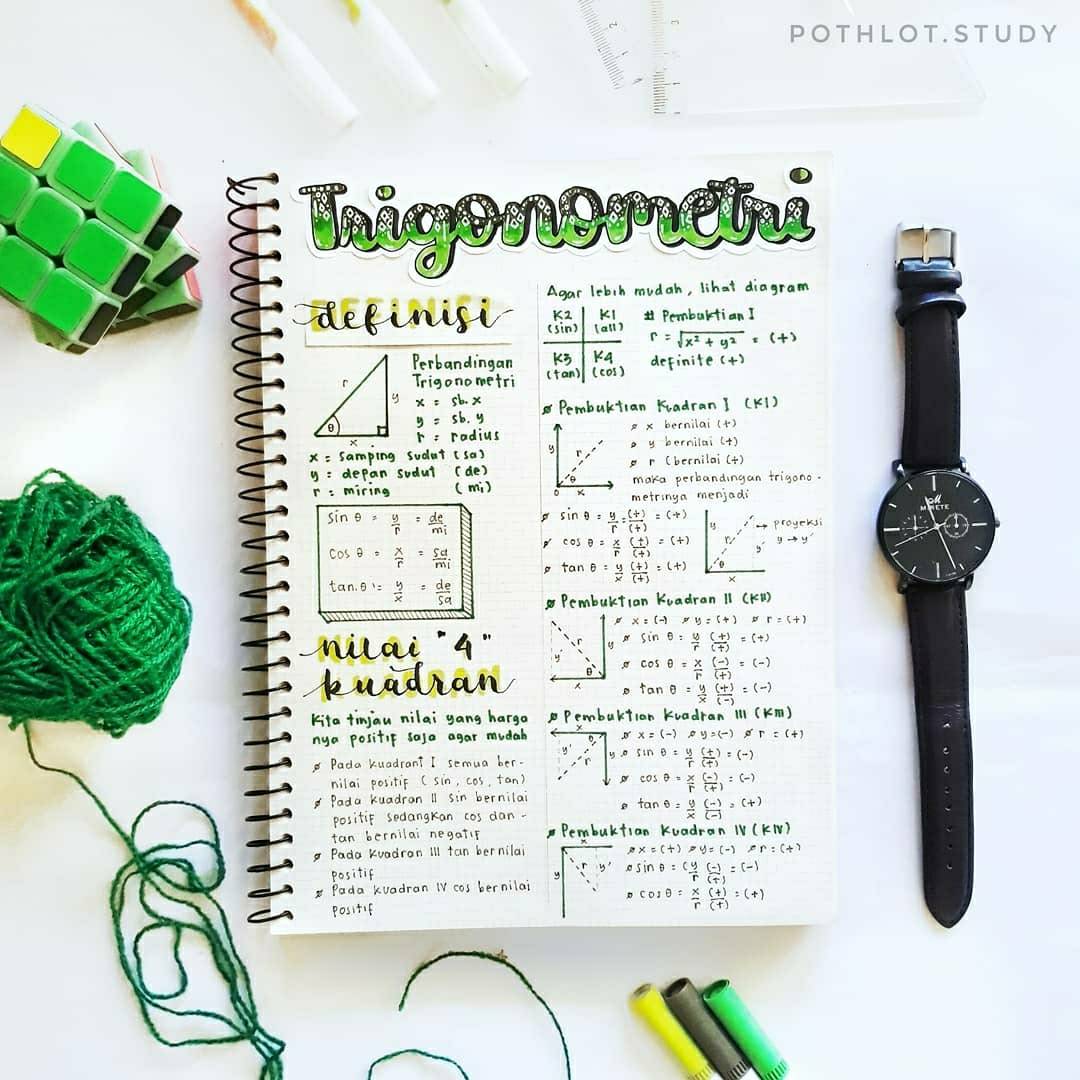 POTHLOT.STUDY
Trigonometri
definisi
r
y
θ
x
Perbandingan
Trigonometri
x = sb. x
y = sb. y
r = radius
x = samping sudut (sa)
y = depan sudut (de)
r = miring (mi)
sin θ = y/r = de/mi
cos θ = x/r = sa/mi
tan θ = y/x = de/sa
nilai "4"
kuadran
Kita tinjau nilai yang harga
nya positif saja agar mudah
Pada kuadrant I semua ber-
nilai positif (sin, cos, tan)
Pada kuadran II sin bernilai
positif sedangkan cos dan -
tan bernilai negatif
Pada kuadran III tan bernilai
positif
Pada kuadran IV cos bernilai
positif
Agar lebih mudah, lihat diagram
K2 K1
(sin) (all)
K3 K4
(tan) (cos)
# Pembuktian I
r = √x² + y² = (+)
definite (+)
Pembuktian Kuadran I (KI)
y
r
θ
0 x
x bernilai (+)
y bernilai (+)
r (bernilai (+)
maka perbandingan trigono-
metrinya menjadi
sin θ = y/r = (+)/(+) = (+)
cos θ = x/r (+)/(+) = (+)
tan θ = y/x (+)/(+) = (+)
y
r
y'
θ
x
proyeksi
y → y'
Pembuktian Kuadran II (KII)
y'
r
y
θ
x
x = (-) y = (+) r = (+)
sin θ = y/r (+)/(+) = (+)
cos θ = x/r (-)/(+) = (-)
tan θ = y/x (+)/(-) = (-)
Pembuktian Kuadran III (KIII)
x
y'
r
y
x = (-) y = (-) r = (+)
sin θ = y/r (+)/(+) = (-)
cos θ = x/r (-)/(+) = (-)
tan θ = y/x (-)/(-) = (+)
Pembuktian Kuadran IV (KIV)
x
y
r
y'
x = (+) y = (-) r = (+)
sin θ = (y/r (-)/(+) = (-)
cos θ = x/r (+)/(+) = (+)
MIRETE